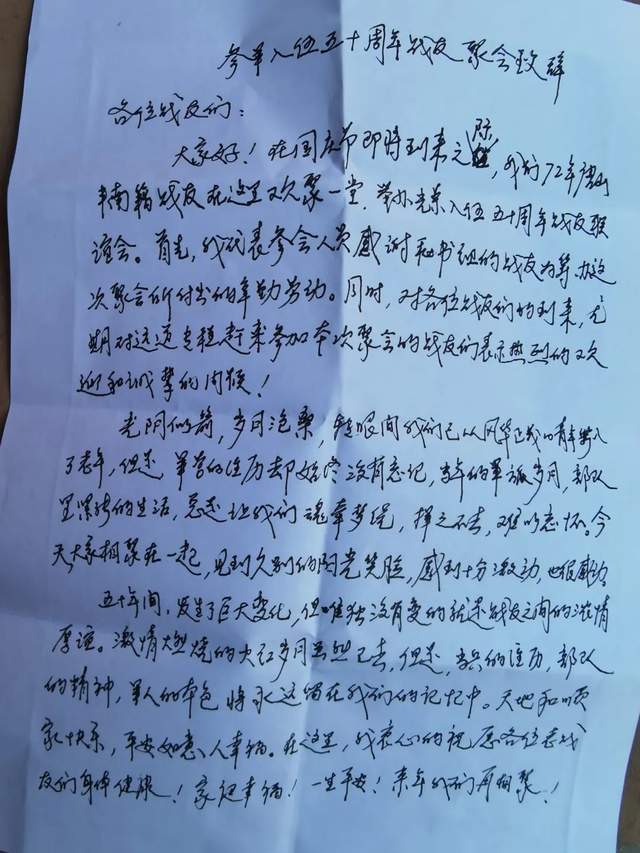 参军入伍五十周年战友聚会致辞
各位战友们：
大家好！在国庆节即将到来之际，我们72年唐山
丰南籍战友在这里又次聚一堂，举办光荣入伍五十周年战友联
谊会。首先，我代表参会人员感谢秘书组的战友为筹办这
次聚会所付出的辛勤劳动。同时，对各位战友们的到来，尤
期对远道专程赶来参加本次聚会的战友们表示热烈的欢
迎和诚挚的问候！
光阴似箭，岁月沧桑，转眼间我们已从风华正茂的青年步入
了老年，但是，军营的经历却始终没有忘记，当年的军旅岁月，部队
里紧张的生活，总是让我们魂牵梦绕，挥之不去，难以忘怀。今
天大家相聚在一起，见到久别的阳光笑脸，感到十分激动，也很感动。
五十年间，发生了巨大变化，但唯独没有变的就是战友之间的浓情
厚谊。激情燃烧的火红岁月虽然已去，但是，当兵的经历，部队
的精神，军人的本色将永远留在我们的记忆中。天地和顺
家快乐，平安如意人幸福。在这里，我衷心的祝愿各位老战
友们身体健康！家庭幸福！一生平安！来年我们再相聚！